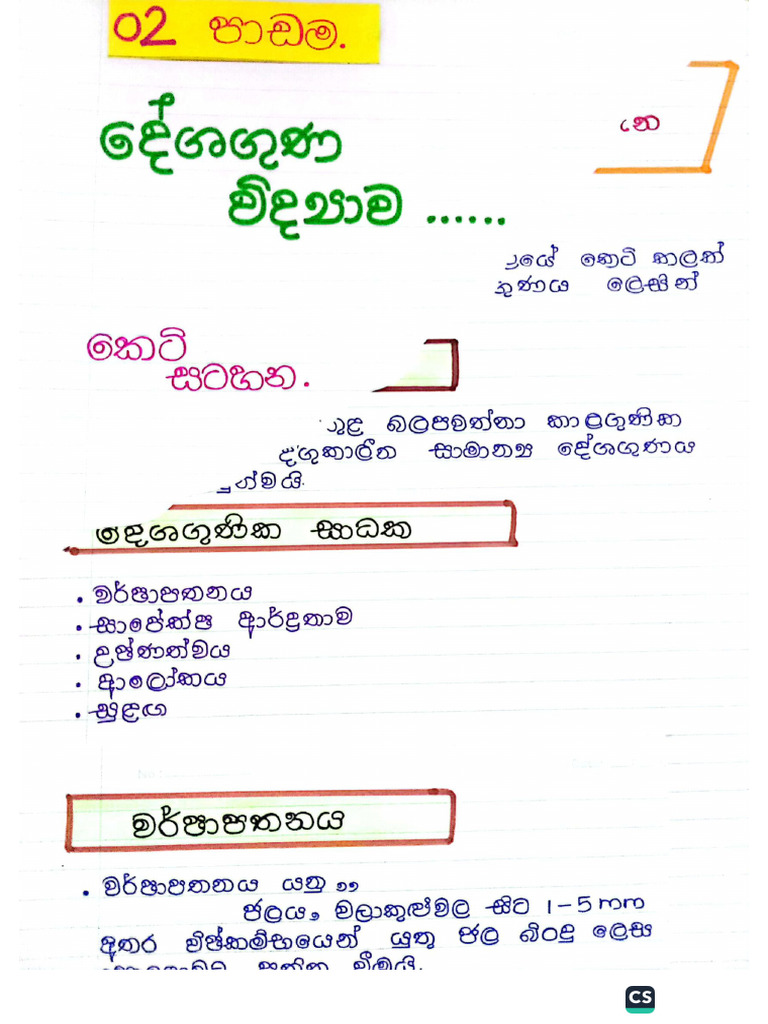 02 පාඩම.
දේශගුණ
විද්‍යාව ......
යේ කෙටි කලක්
ගුණය ලෙසින්
කෙටි
සටහන.
තුළ බලපවත්නා කාළගුණික
දිගුකාලීන සාමාන්‍ය දේශගුණය
දෙශගුණික සාධක
. වර්ෂාපතනය
. සාපේක්ෂ ආර්ද්‍රතාව
. උෂ්ණත්වය
. ආලෝකය
. සුළඟ
වර්ෂාපතනය
. වර්ෂාපතනය යනු ,,
ජලය, වලාකුළුවල සිට 1-5mm
අතර විෂ්කම්භයෙන් යුතු ජල බිංදු ලෙස
පතිත වීමයි.
CS